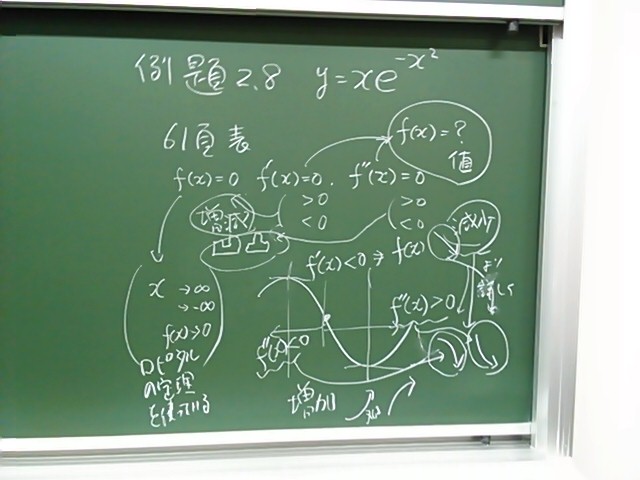 例題2.8 y=xe^{-x^2}
61頁表
f(x)=?
値
f(x)=0 f'(x)=0. f''(x)=0
>0 >0
<0 <0
増減
凹凸
減少
f'(x)<0 ⇒ f(x)
より
詳しく
x →∞
→-∞
f(x)>0
f''(x)>0
f''(x)<0
ロピタル
の定理
を使っている
増加